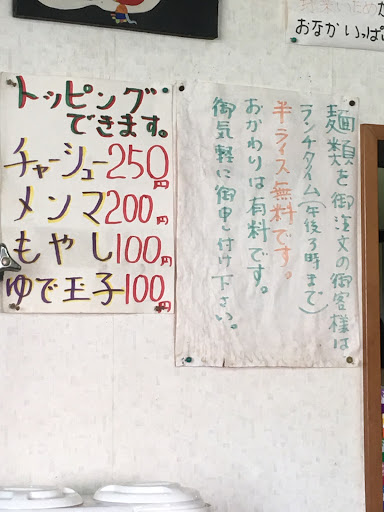 トッピング
できます。
チャーシュー250円
メンマ200円
もやし100円
ゆで玉子100円
麺類を御注文の御客様は
ランチタイム(午後3時まで)
半ライス無料です。
おかわりは有料です。
御気軽に御申し付け下さい。
おなかいっぱい